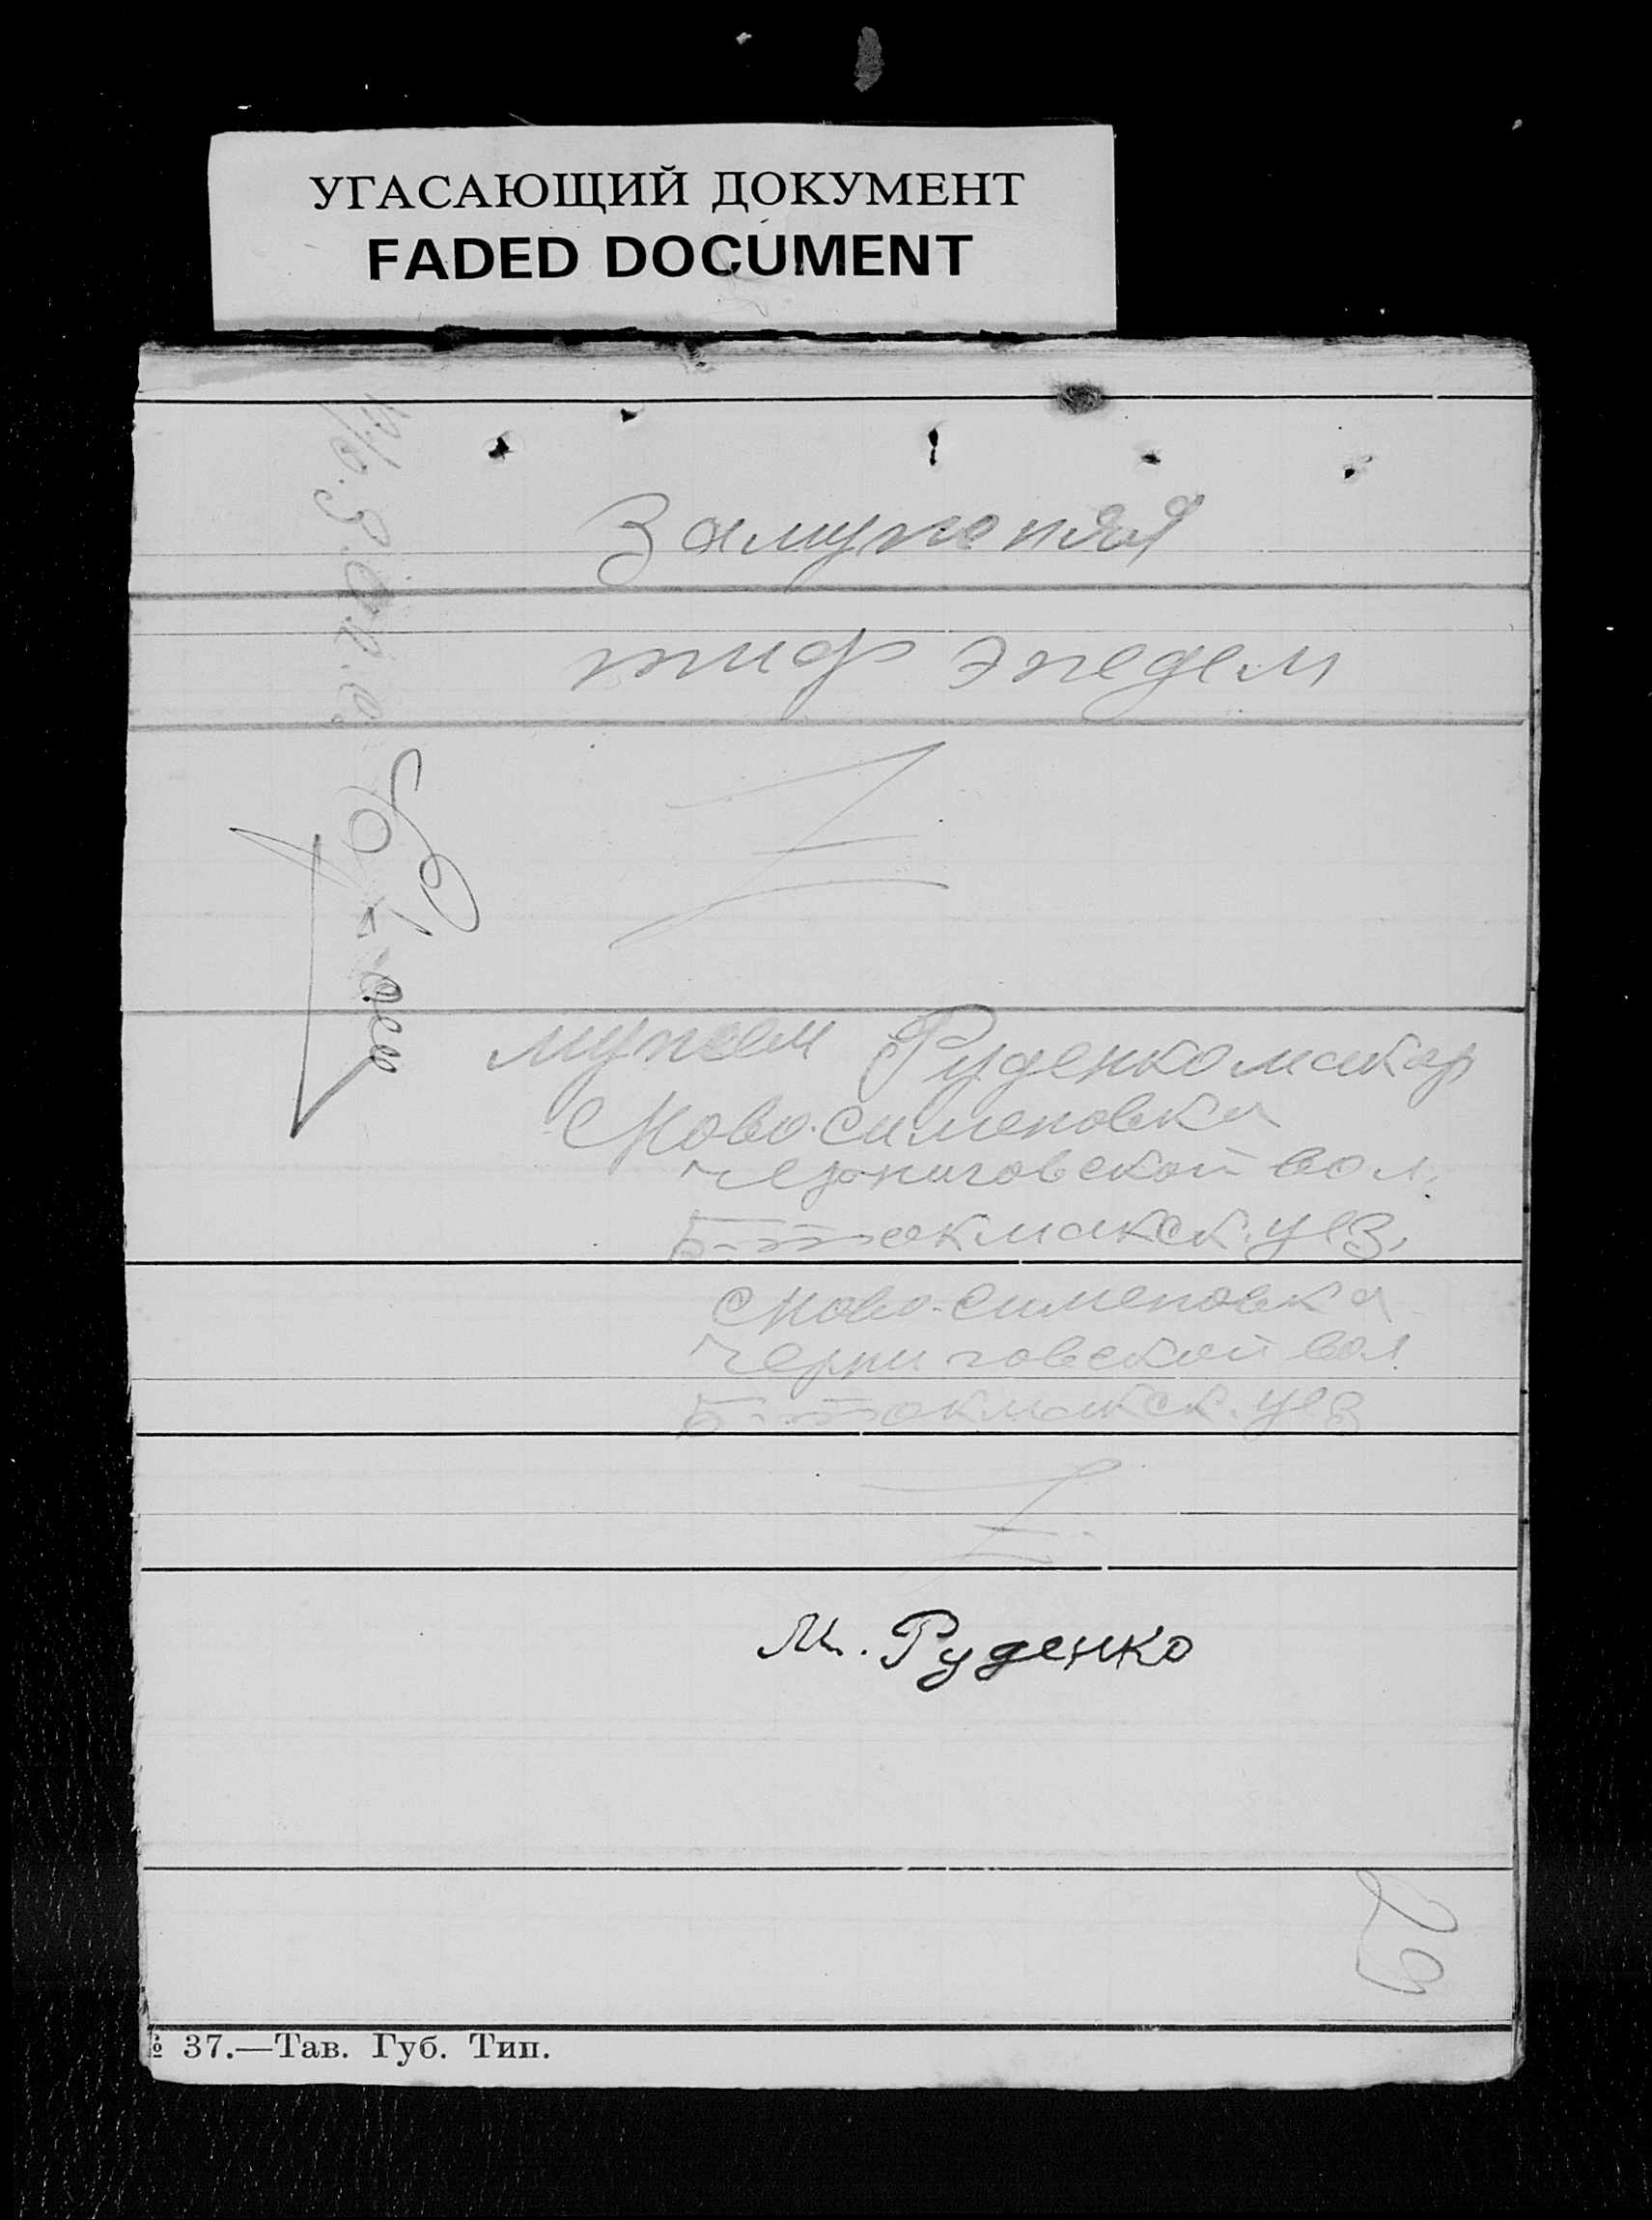 УГАСАЮЩИЙ ДОКУМЕНТ
FADED DOCUMENT
Замужняя
тиф эпедем
мужем Руденко макар
Ново-сименовка
черниговской вол.
Б-токмакск. уез.
Ново-сименовка
черниговской вол
Б-токмакск. уез
М. Руденко
29
№ 37.—Тав. Губ. Тип.